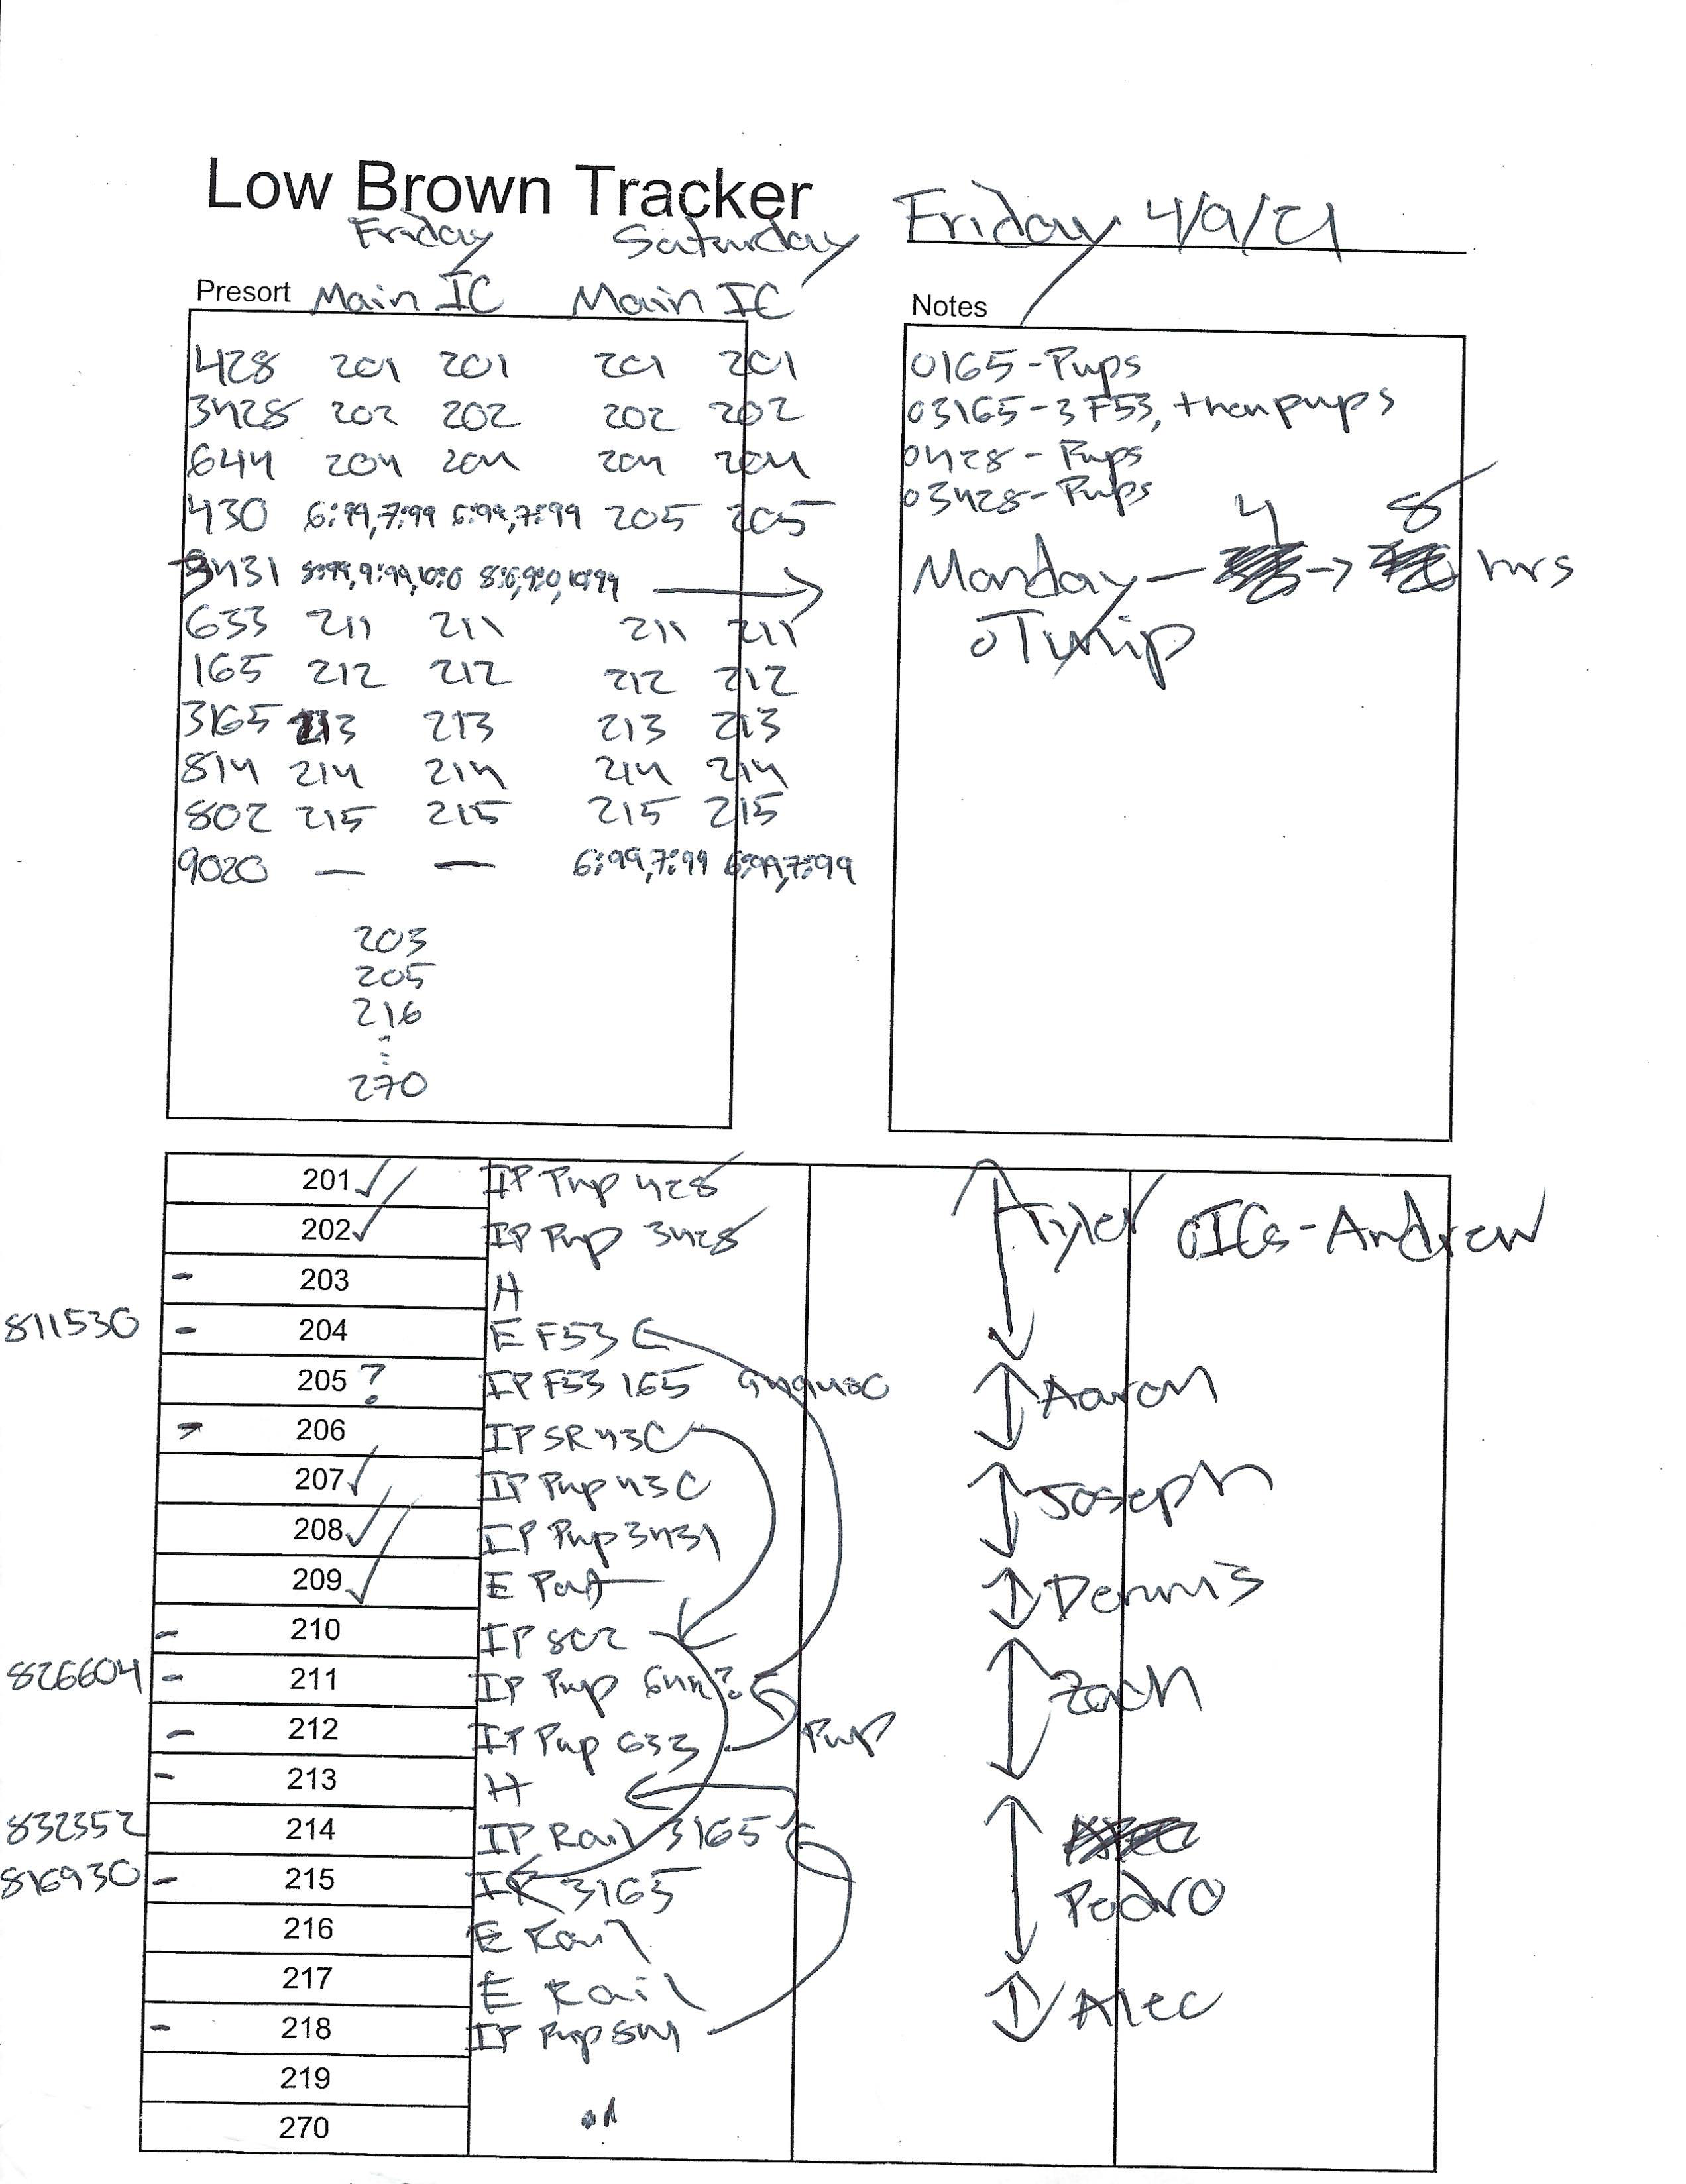 Low Brown Tracker
Friday 4/9/21
Friday Saturday
Presort Main IC Main IC
Notes
428 201 201 201 201
3428 202 202 202 202
644 204 204 204 204
430 6:99,7:99 6:99,7:99 205 205
3431 8:99,9:99,10:0 8:6,9:0,10:99 →
633 211 211 211 211
165 212 212 212 212
3165 213 213 213 213
814 214 214 214 214
802 215 215 215 215
9020 — — 6:99,7:99 6:99,7:99
203
205
216
270
0165-Pups
03165-3 F53, then pups
0428-Pups
03428-Pups
4 8
Monday — → hrs
201 ✓ IP Pup 428
202 ✓ IP Pup 3428
Tyler
oICs-Andrew
- 203 H
811530 - 204 E F53
205 ? IP F53 165
Aaron
- 206 IP SR 430
207 ✓ IP Pup 430
Joseph
208 ✓ IP Pup 3431
209 ✓ E
Dennis
- 210 IP 802
826604 - 211 IP Pup 644?
Zach
- 212 IP Pup 633 Pup
- 213 H
832352 214 IP Rail 3165
816930 - 215 IP 3165
Pedro
216 E Rail
217 E Rail
Alec
- 218 IP Pup 814
219
270